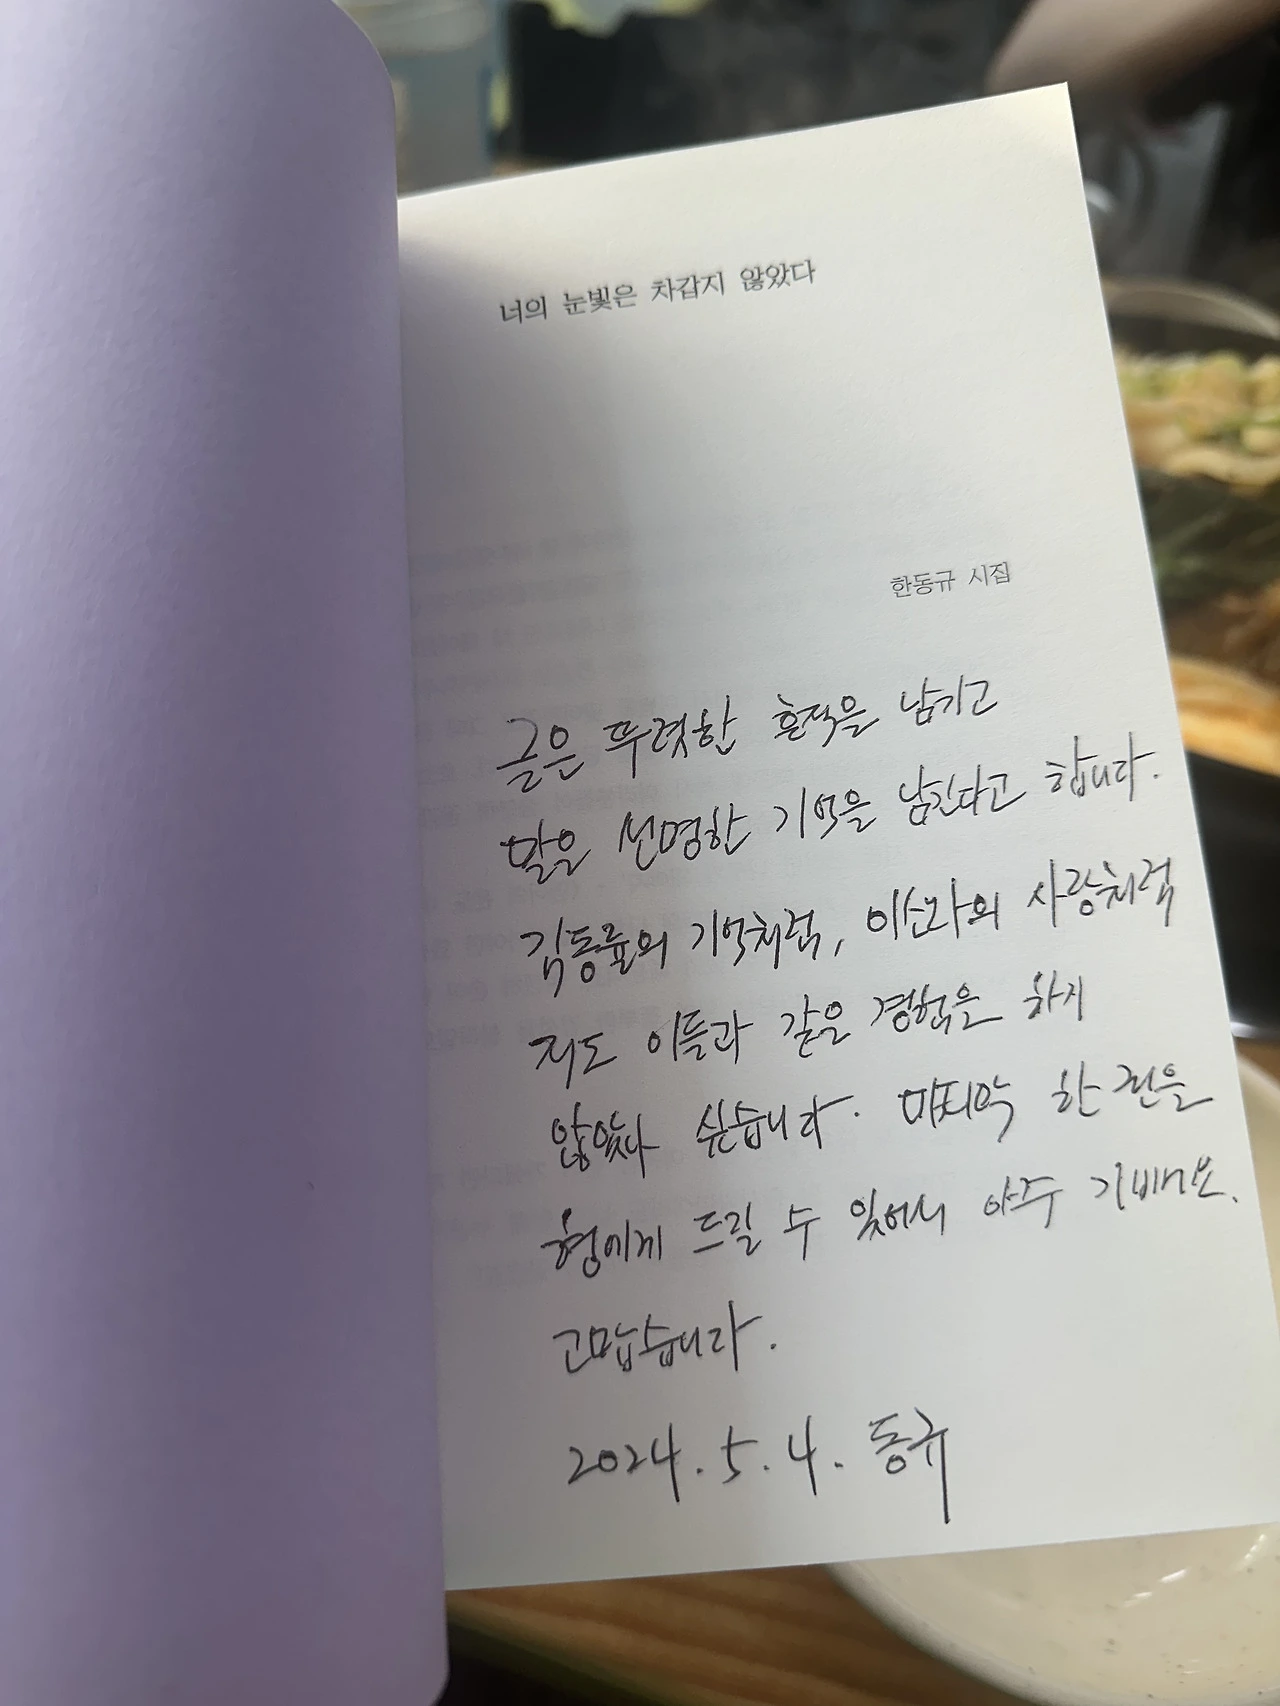 너의 눈빛은 차갑지 않았다
한동규 시집
글은 뚜렷한 흔적을 남기고
말은 선명한 기억을 남긴다고 합니다.
김동률의 기억처럼, 이소라의 사랑처럼
저도 이들과 같은 경험을 하지
않았나 싶습니다. 마지막 한 권을
형에게 드릴 수 있어서 아주 기뻐요.
고맙습니다.
2024. 5. 4. 동규